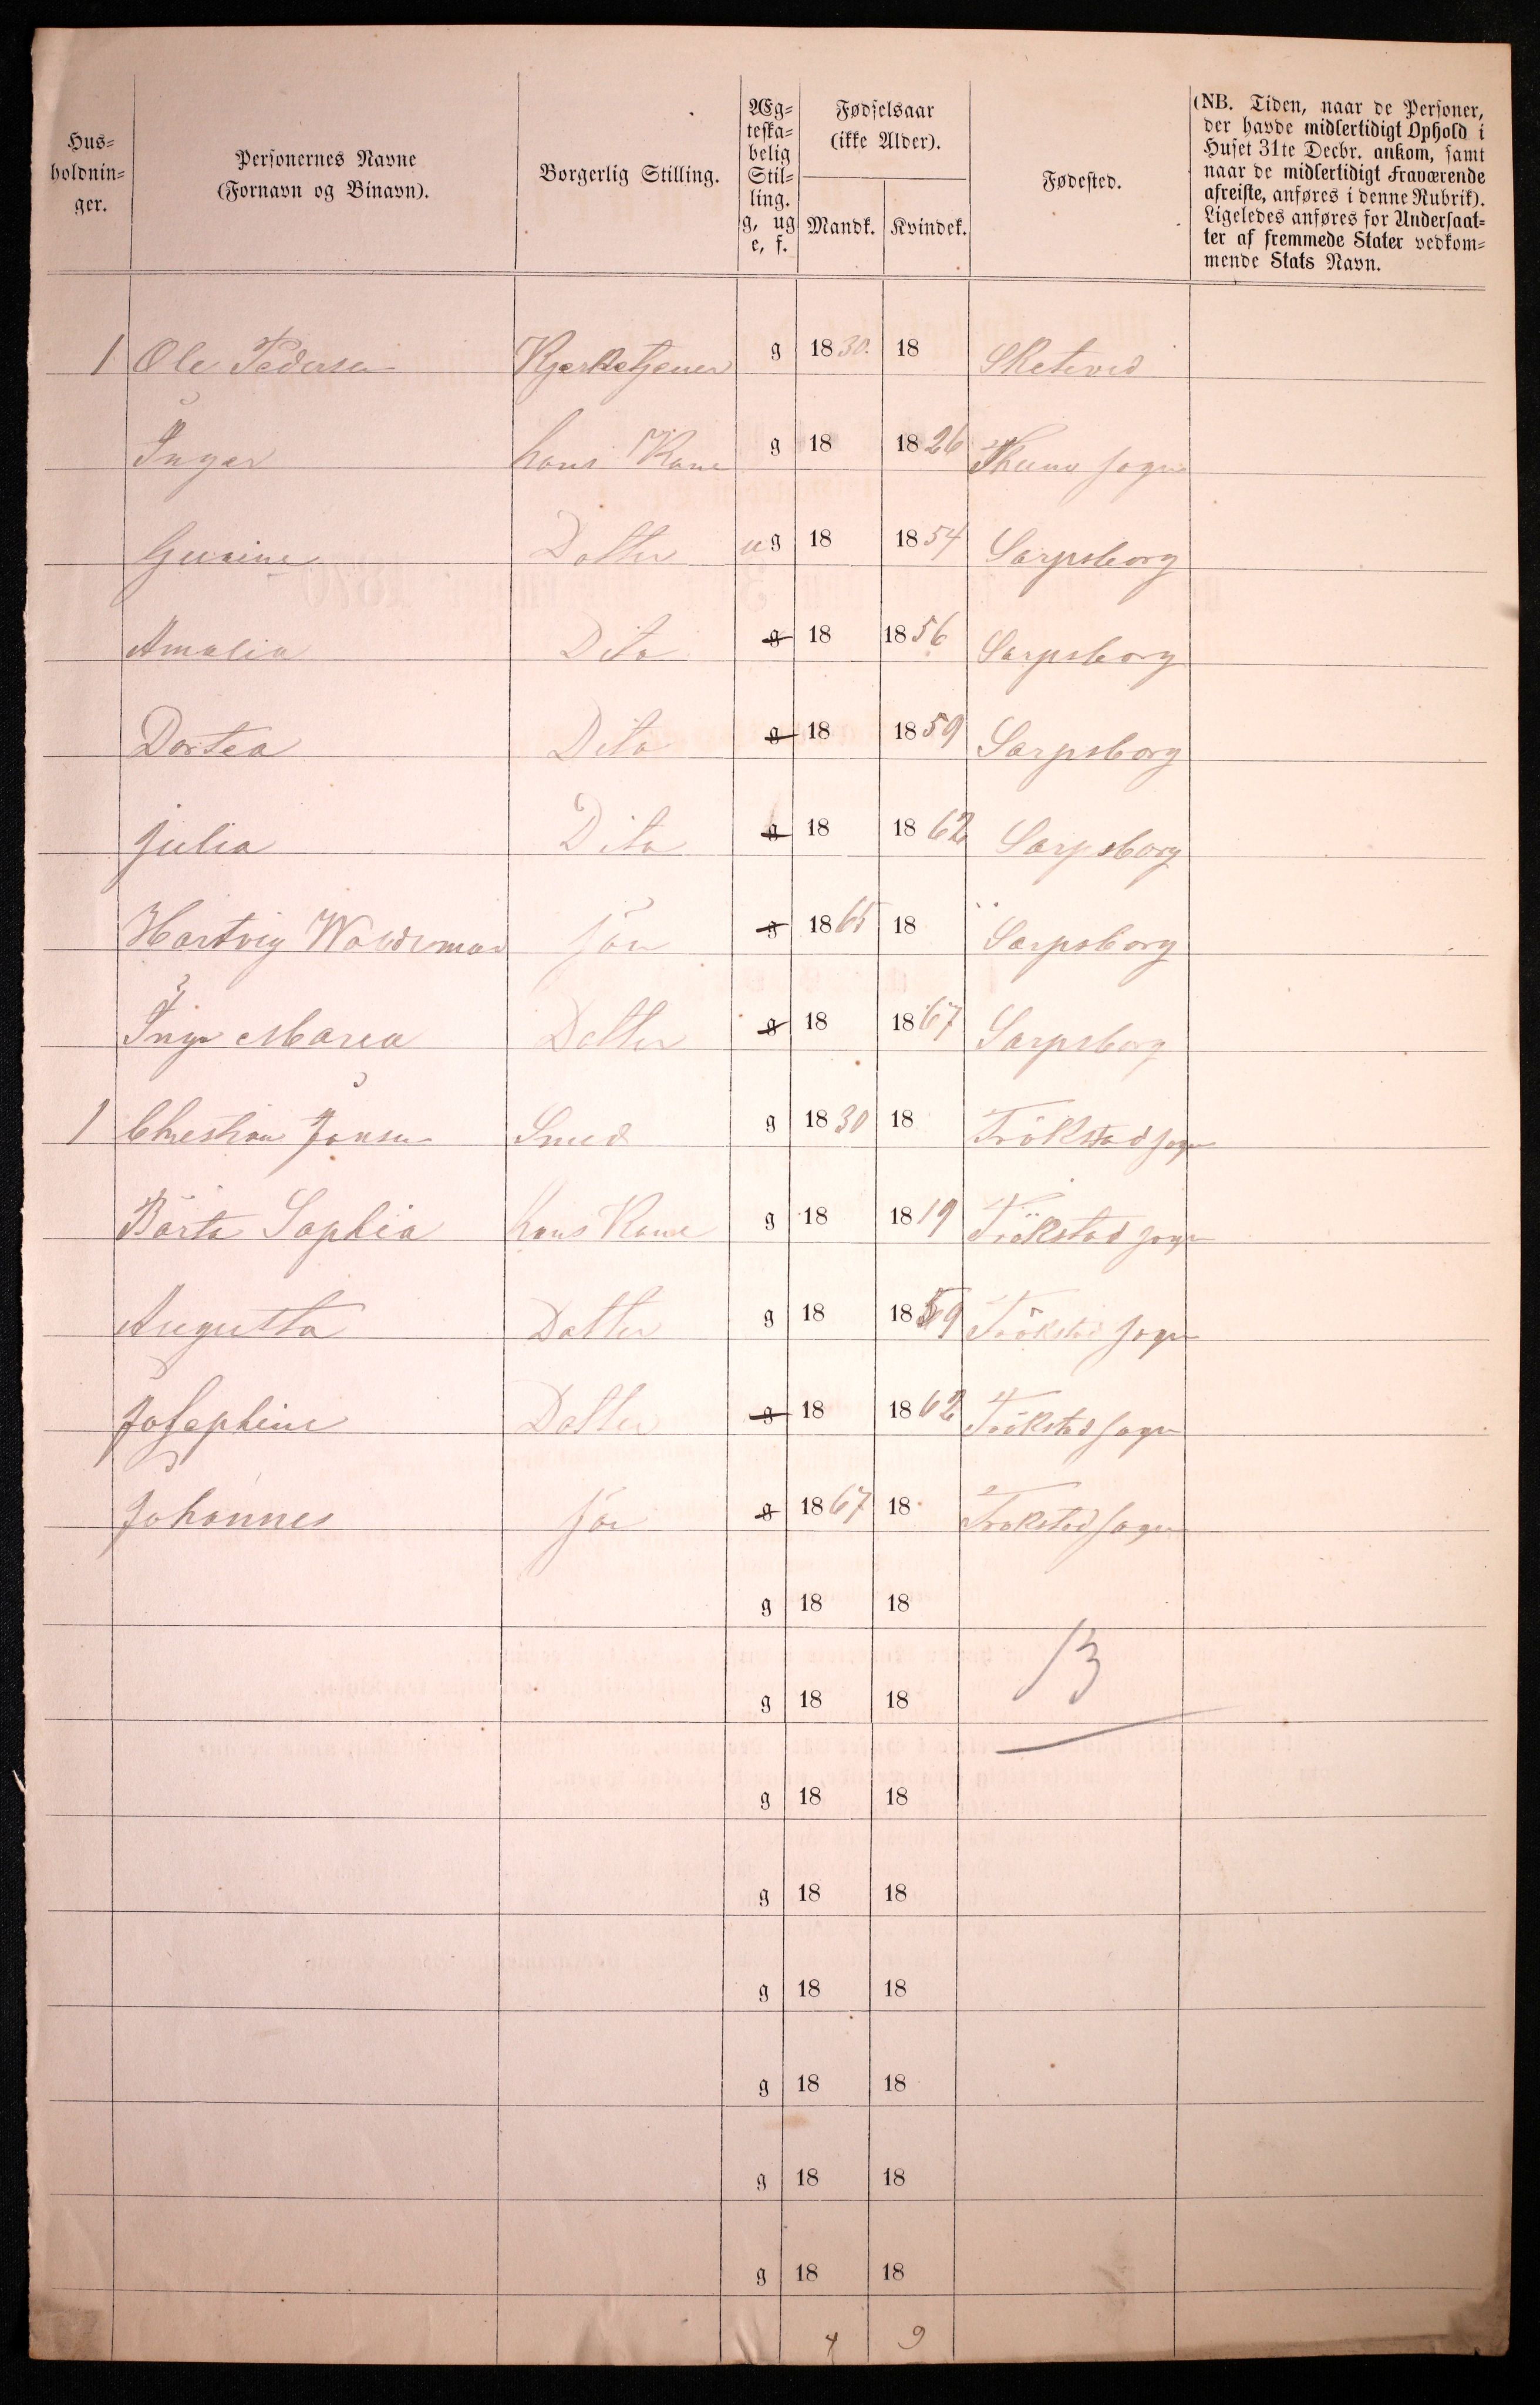 Hus-
holdnin-
ger.
Personernes Navne
(Fornavn og Binavn).
Borgerlig Stilling.
Æg-
teska-
belig
Stil-
ling.
g, ug
e, f.
Fødselsaar
(ikke Alder).
Mandk. Kvindek.
Fødested.
(NB. Tiden, naar de Personer,
der havde midlertidigt Ophold i
Huset 31te Decbr. ankom, samt
naar de midlertidigt Fraværende
afreiste, anføres i denne Rubrik).
Ligeledes anføres for Undersaat-
ter af fremmede Stater vedkom-
mende Stats Navn.
1 Ole Pedersen Kjerketjener g 1830. 18 Sketved
Inger hans Kone g 18 1826 Thunø sogn
Gunine Dotter ug 18 1854 Sarpsborg
Amalia Dito g 18 1856 Sarpsborg
Dortea Dito g 18 1859 Sarpsborg
Julia Dito g 18 1862 Sarpsborg
Hartvig Woldemar Sön g 1865 18 Sarpsborg
Inga Maria Dotter g 18 1867 Sarpsborg
1 Christian Jonsen Smed g 1830 18 Trökstad sogn
Bärta Sophia hans Kone g 18 1819 Trökstad sogn
Augusta Datter g 18 1859 Trökstad sogn
Josephine Datter g 18 1862 Trökstad sogn
Johannes Sön g 1867 18 Trokstad sogn
g 18 18
13
g 18 18
g 18 18
g 18 18
g 18 18
g 18 18
g 18 18
g 18 18
4 9